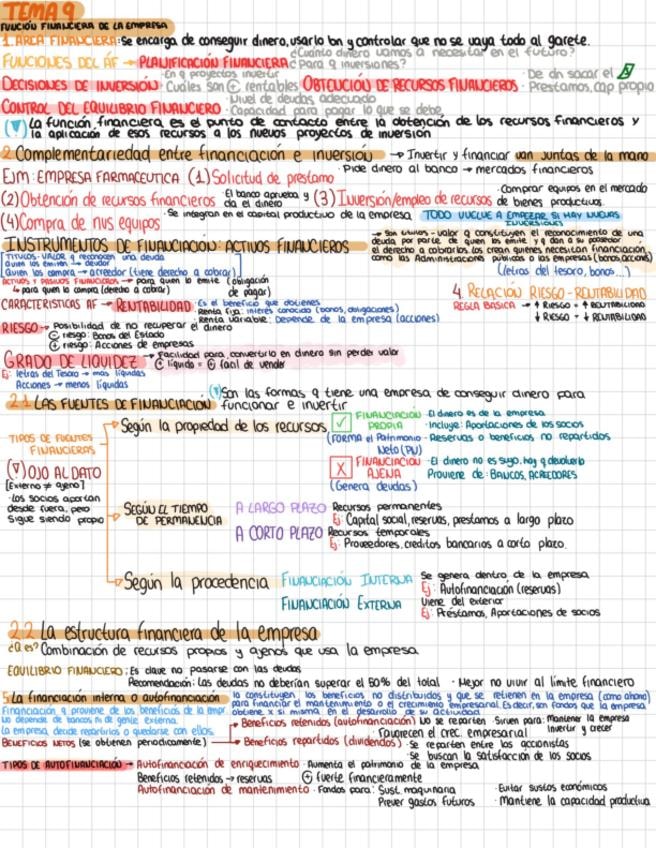 TEMA 9
FUNCIÓN FINANCIERA DE LA EMPRESA
1. ÁREA FINANCIERA: Se encarga de conseguir dinero, usarlo bn y controlar que no se vaya todo al garete.
FUNCIONES DEL ÁF → PLANIFICACIÓN FINANCIERA ¿Cuánto dinero vamos a necesitar en el futuro?
¿Para q inversiones?
DECISIONES DE INVERSIÓN · En q proyectos invertir
· Cuáles son (+) rentables
OBTENCIÓN DE RECURSOS FINANCIEROS · De dn sacar el
· Préstamos, cap propio
CONTROL DEL EQUILIBRIO FINANCIERO · Nivel de deudas adecuado
· Capacidad para pagar lo que se debe
La función financiera es el punto de contacto entre la obtención de los recursos financieros y
la aplicación de esos recursos a los nuevos proyectos de inversión
2. Complementariedad entre financiación e inversión → Invertir y financiar van juntas de la mano
EJM: EMPRESA FARMACEUTICA (1) Solicitud de préstamo · Pide dinero al banco → mercados financieros
(2) Obtención de recursos financieros · El banco aprueba y
da el dinero
(3) Inversión/empleo de recursos · Comprar equipos en el mercado
de bienes productivos.
(4) Compra de nvs equipos · Se integran en el capital productivo de la empresa
TODO VUELVE A EMPEZAR SI HAY NUEVAS
INVERSIONES
INSTRUMENTOS DE FINANCIACIÓN: ACTIVOS FINANCIEROS
→ Son títulos-valor q constituyen el reconocimiento de una
deuda por parte de quien los emite y q dan a su poseedor
el derecho a cobrarlos. los crean quienes necesitan financiación,
como las Administraciones públicas o las empresas (bonos, acciones)
(letras del tesoro, bonos...)
TITULOS-VALOR q reconocen una deuda
Quien los emite → deudor
Quien los compra → acreedor (tiene derecho a cobrar)
ACTIVOS Y PASIVOS FINANCIEROS → para quien lo emite (obligación
de pagar)
↳ para quien lo compra (derecho a cobrar)
CARACTERÍSTICAS AF → RENTABILIDAD · Es el beneficio que obtienes
· Renta fija: interés conocido (bonos, obligaciones)
· Renta variable: Depende de la empresa (acciones)
4. RELACIÓN RIESGO-RENTABILIDAD
REGLA BÁSICA → ↑ RIESGO = ↑ RENTABILIDAD
↓ RIESGO = ↓ RENTABILIDAD
RIESGO → Posibilidad de no recuperar el dinero
(-) riesgo: Bonos del Estado
(+) riesgo: Acciones de empresas
GRADO DE LIQUIDEZ → Facilidad para convertirlo en dinero sin perder valor
(+) líquido = (+) facil de vender
Ej: letras del Tesoro → más líquidas
Acciones → menos líquidas
2.1 LAS FUENTES DE FINANCIACIÓN
Son las formas q tiene una empresa de conseguir dinero para
funcionar e invertir
TIPOS DE FUENTES
FINANCIERAS
Según la propiedad de los recursos
FINANCIACIÓN
PROPIA
(FORMA el Patrimonio
Neto (PN)
· El dinero es de la empresa
· Incluye: Aportaciones de los socios
· Reservas o beneficios no repartidos
X FINANCIACIÓN
AJENA
(Genera deudas)
· El dinero no es suyo, hay q devolverlo
Proviene de: BANCOS, ACREEDORES
OJO AL DATO
[Externo ≠ ajeno]
· Los socios aportan
desde fuera, pero
sigue siendo propio
SEGÚN EL TIEMPO
DE PERMANENCIA
A LARGO PLAZO Recursos permanentes
Ej: Capital social, reservas, prestamos a largo plazo
A CORTO PLAZO Recursos temporales
Ej: Proveedores, creditos bancarios a corto plazo.
Según la procedencia
FINANCIACIÓN INTERNA Se genera dentro de la empresa
Ej: Autofinanciación (reservas)
FINANCIACIÓN EXTERNA Viene del exterior
Ej: Préstamos, Aportaciones de socios
2.2 La estructura financiera de la empresa
¿Q es? Combinación de recursos propios y ajenos que usa la empresa
EQUILIBRIO FINANCIERO: Es clave no pasarse con las deudas
Recomendación: Las deudas no deberían superar el 60% del total · Mejor no vivir al límite financiero
5. La financiación interna o autofinanciación
la constituyen los beneficios no distribuidos y que se retienen en la empresa (como ahorro)
para financiar el mantenimiento o el crecimiento empresarial. Es decir, son fondos que la empresa
obtiene x si misma en el desarrollo de su actividad
Financiación q proviene de los beneficios de la empr
No depende de bancos ni de gente externa.
La empresa decide repartirlos o quedarse con ellos.
BENEFICIOS NETOS (se obtienen periodicamente)
→ Beneficios retenidos (autofinanciación) No se reparten · Sirven para: Mantener la empresa
Invertir y crecer
· Favorecen el crec. empresarial
→ Beneficios repartidos (dividendos) · Se reparten entre los accionistas
· Se buscan la satisfacción de los socios
TIPOS DE AUTOFINANCIACIÓN → Autofinanciación de enriquecimiento · Aumenta el patrimonio de la empresa
Beneficios retenidos → reservas (+) fuerte financieramente
Autofinanciación de mantenimiento · Fondos para: Sust. maquinaria
Prever gastos futuros
· Evitar sustos económicos
· Mantiene la capacidad productiva